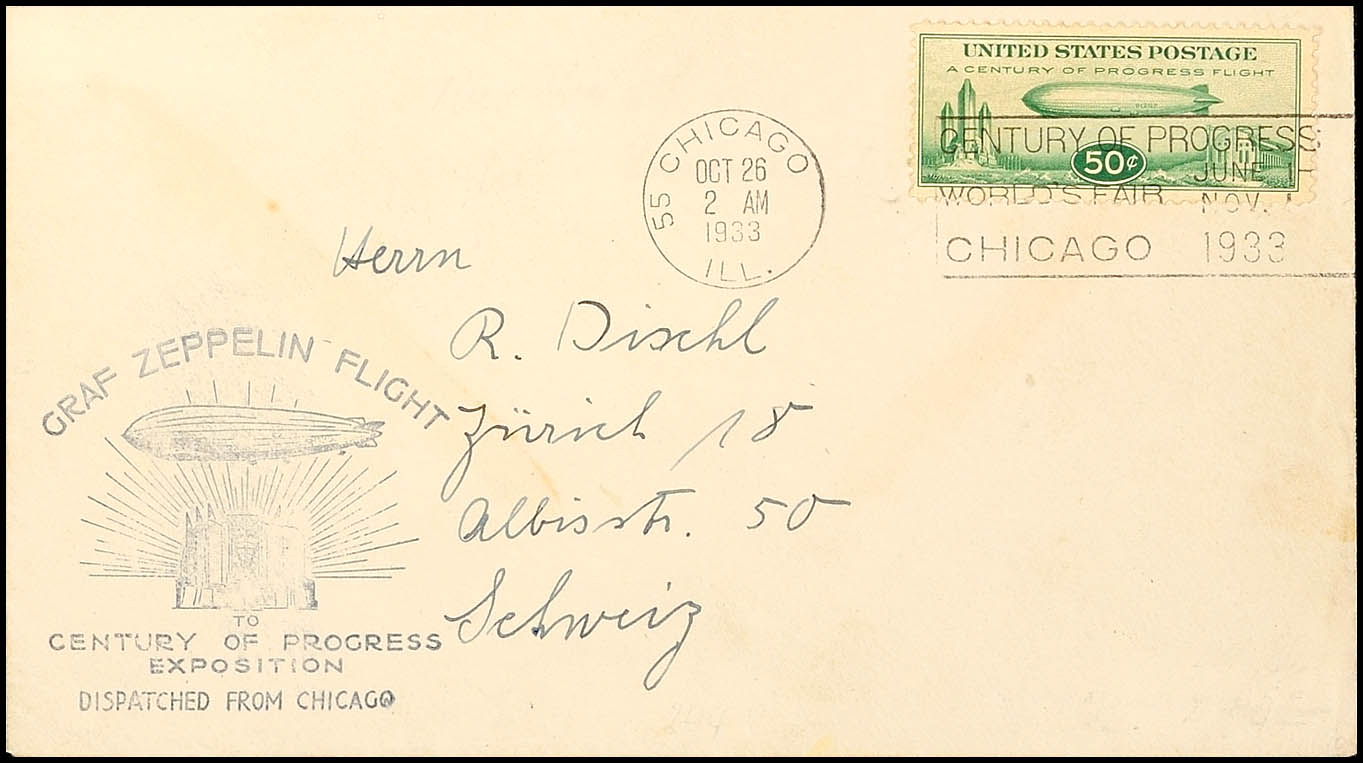 UNITED STATES POSTAGE
A CENTURY OF PROGRESS FLIGHT
50¢
CENTURY OF PROGRESS
JUNE 1
WORLD'S FAIR NOV. 1
CHICAGO 1933
55 CHICAGO
OCT 26
2 AM
1933
ILL.
Herrn
R. Dischl
Zürich 18
Albisstr. 50
Schweiz
GRAF ZEPPELIN FLIGHT
TO
CENTURY OF PROGRESS
EXPOSITION
DISPATCHED FROM CHICAGO